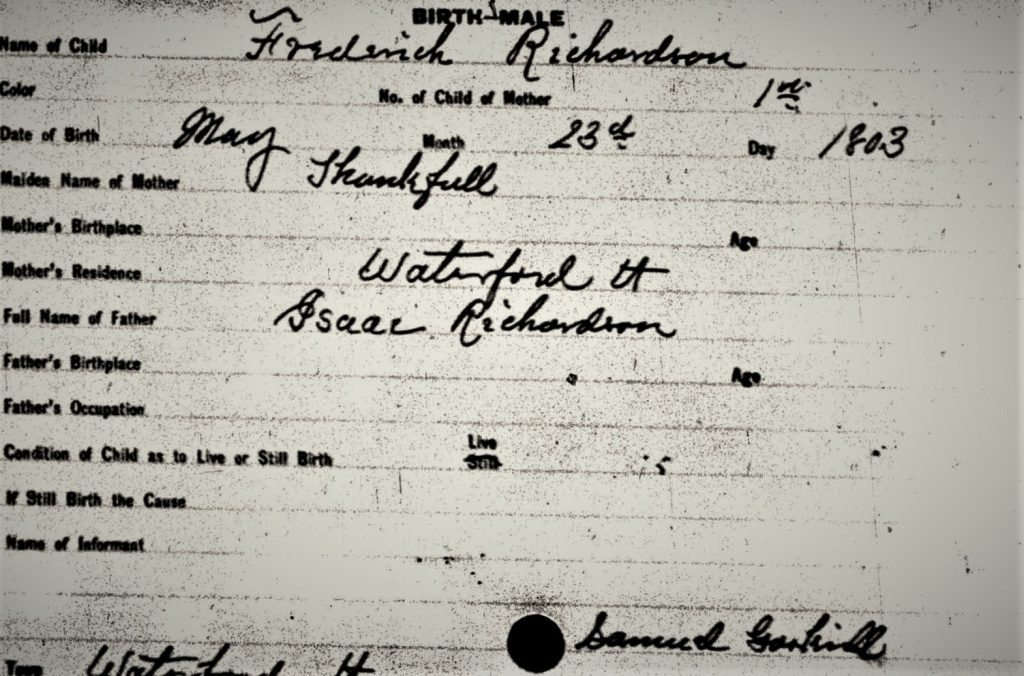 BIRTH—MALE
Name of Child Frederick Richardson
Color No. of Child of Mother 1st
Date of Birth May Month 23d Day 1803
Maiden Name of Mother Thankfull
Mother's Birthplace Age
Mother's Residence Waterford Vt
Full Name of Father Isaac Richardson
Father's Birthplace Age
Father's Occupation
Condition of Child as to Live or Still Birth Live Still
If Still Birth the Cause
Name of Informant
Samuel
Town Waterford Vt